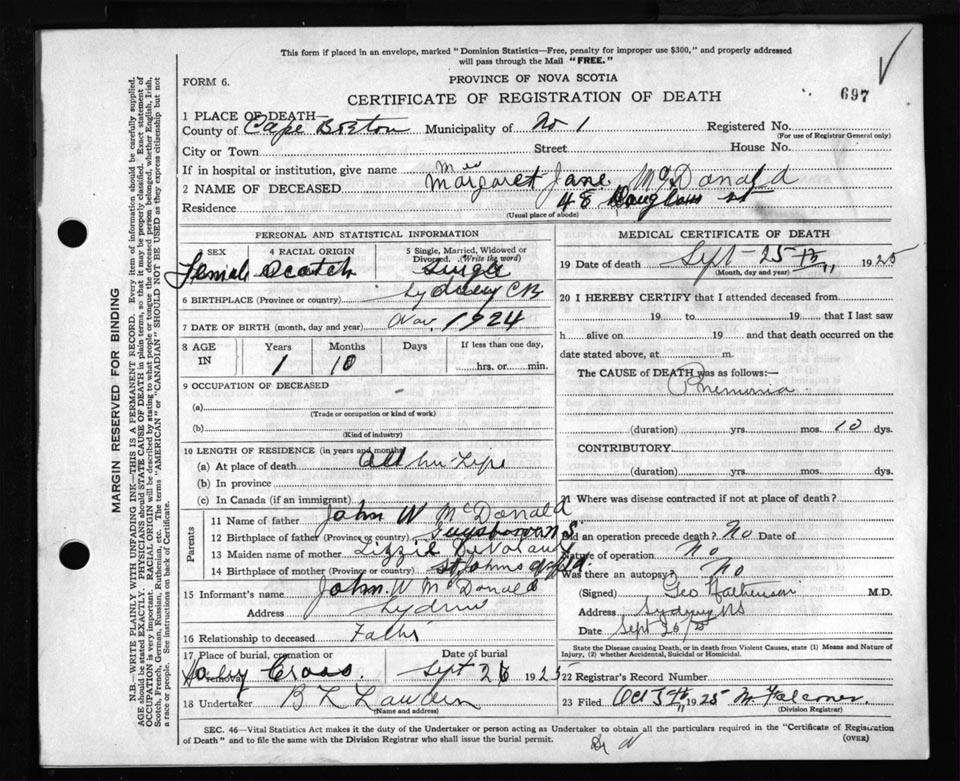 This form if placed in an envelope, marked "Dominion Statistics—Free, penalty for improper use $300," and properly addressed
will pass through the Mail "FREE."
FORM 6.
PROVINCE OF NOVA SCOTIA
697
CERTIFICATE OF REGISTRATION OF DEATH
1 PLACE OF DEATH—
County of Cape Breton Municipality of No 1 Registered No.
(For use of Registrar General only)
City or Town Street House No.
If in hospital or institution, give name
2 NAME OF DECEASED Margaret Jane McDonald
Residence 48 Douglass st
(Usual place of abode)
PERSONAL AND STATISTICAL INFORMATION
3 SEX 4 RACIAL ORIGIN 5 Single, Married, Widowed or
Divorced. (Write the word)
Female Scotch Single
6 BIRTHPLACE (Province or country) Sydney CB
7 DATE OF BIRTH (month, day and year) Nov 1924
8 AGE IN Years Months Days If less than one day,
1 10 hrs. or min.
9 OCCUPATION OF DECEASED
(a)
(Trade or occupation or kind of work)
(b)
(Kind of industry)
10 LENGTH OF RESIDENCE (in years and months)
(a) At place of death All her Life
(b) In province
(c) In Canada (if an immigrant)
Parents
11 Name of father John W McDonald
12 Birthplace of father (Province or country) Guysboro N S
13 Maiden name of mother Lizzie
14 Birthplace of mother (Province or country) St Johns nfld.
15 Informant's name John W McDonald
Address Sydney
16 Relationship to deceased Father
17 Place of burial, cremation or Date of burial
Holy Cross. Sept 26 1925
18 Undertaker B L
(Name and address)
MEDICAL CERTIFICATE OF DEATH
19 Date of death Sept 25th 1925
(Month, day and year)
20 I HEREBY CERTIFY that I attended deceased from
19 to 19 that I last saw
h alive on 19 and that death occurred on the
date stated above, at m.
The CAUSE of DEATH was as follows:—
Pnemonia
(duration) yrs. mos. 10 dys.
CONTRIBUTORY
(duration) yrs. mos. dys.
21 Where was disease contracted if not at place of death?
Did an operation precede death? No Date of
Nature of operation No
Was there an autopsy? No
(Signed) Geo M.D.
Address Sydney NS
Date Sept 26/25
State the Disease causing Death, or in death from Violent Causes, state (1) Means and Nature of
Injury, (2) whether Accidental, Suicidal or Homicidal.
22 Registrar's Record Number
23 Filed Oct 5th 1925 M Falconer
(Division Registrar)
SEC. 46—Vital Statistics Act makes it the duty of the Undertaker or person acting as Undertaker to obtain all the particulars required in the "Certificate of Registration
of Death" and to file the same with the Division Registrar who shall issue the burial permit.
(OVER)
MARGIN RESERVED FOR BINDING
N.B.—WRITE PLAINLY WITH UNFADING INK—THIS IS A PERMANENT RECORD. Every item of information should be carefully supplied.
AGE should be stated EXACTLY. PHYSICIANS should STATE CAUSE OF DEATH in plain terms, so that it may be properly classified. Exact statement of
OCCUPATION is very important. RACIAL ORIGIN will be described by stating to what people or tongue the deceased person belonged, whether English, Irish,
Scotch, French, German, Russian, Ruthenian, etc. The terms "AMERICAN" or "CANADIAN" SHOULD NOT BE USED as they express citizenship but not
a race or people. See instructions on back of Certificate.